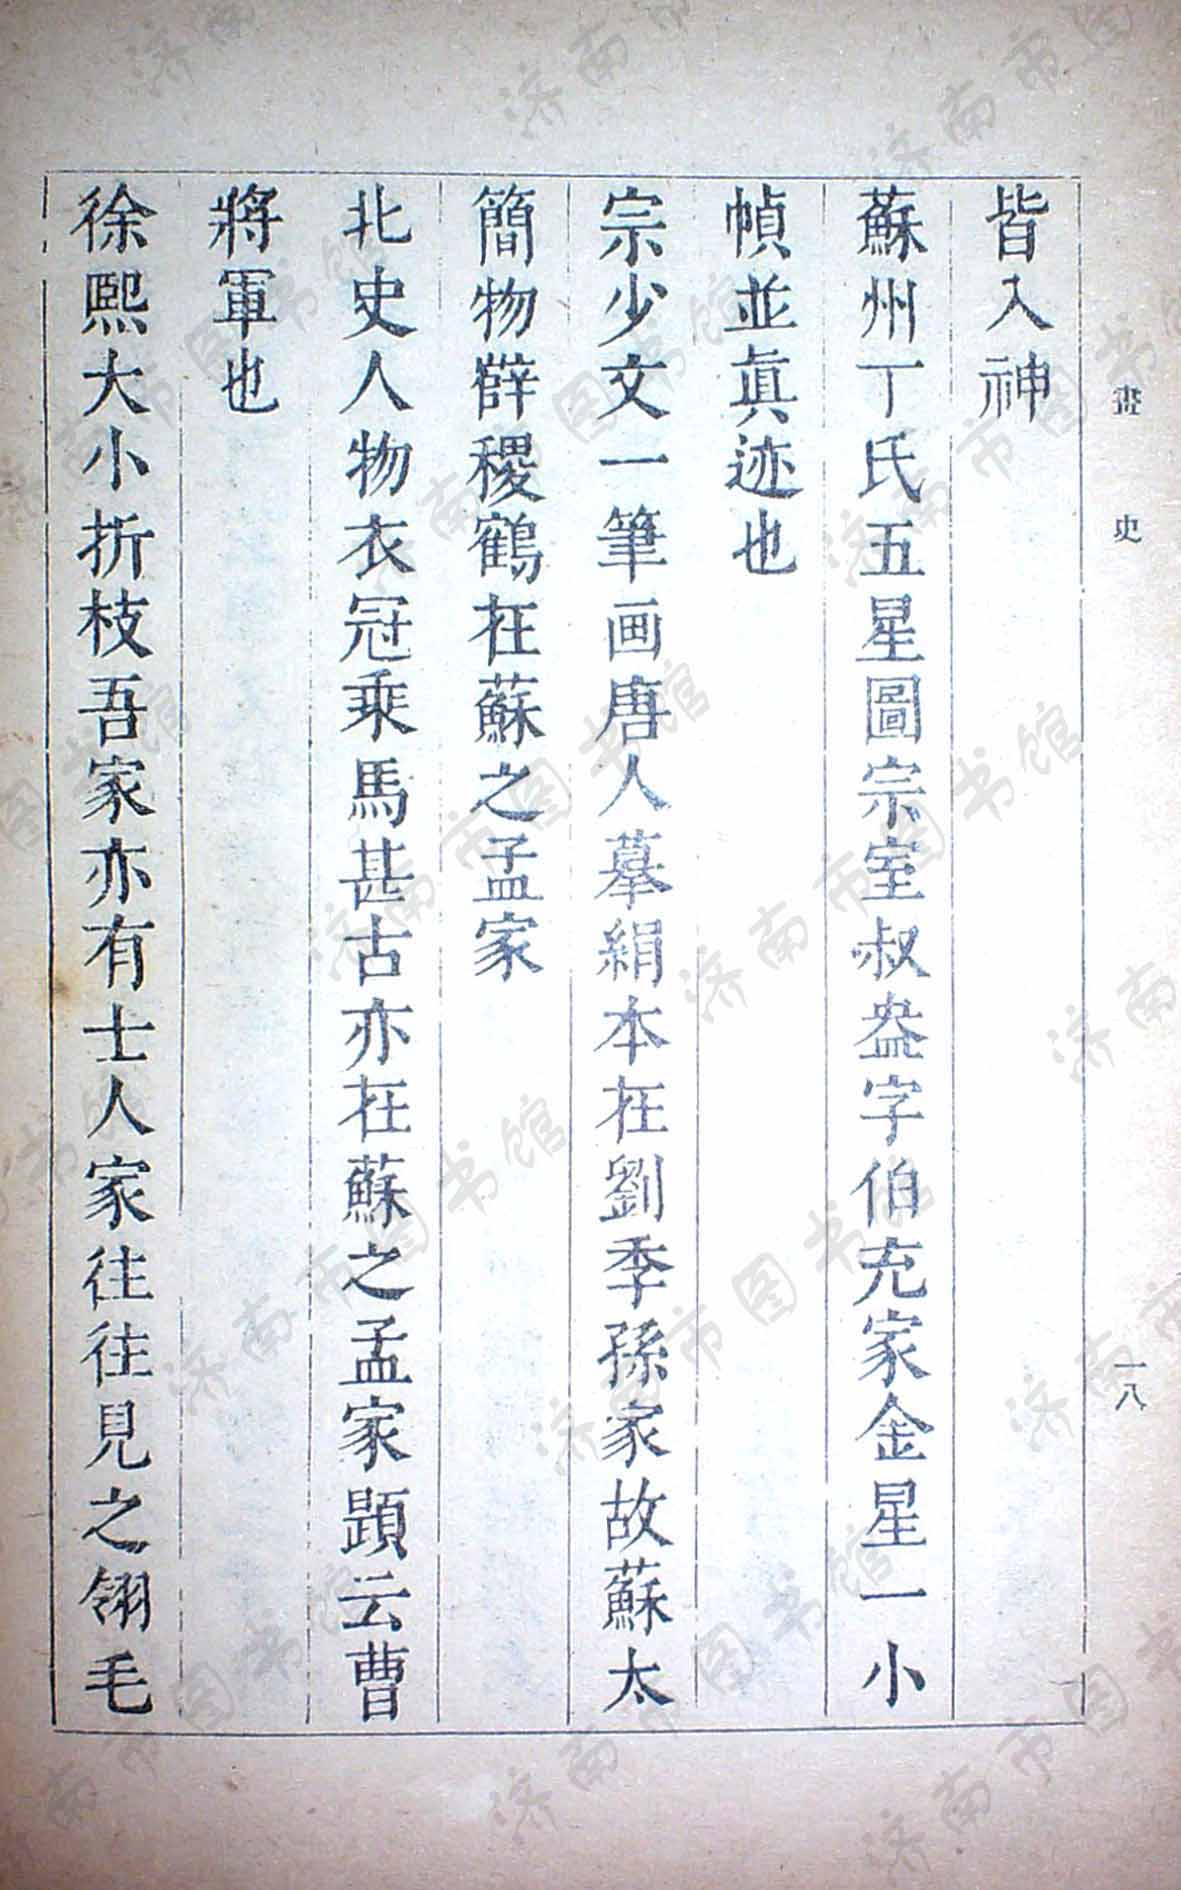 畫史
一八
皆入神
蘇州丁氏五星圖宗室叔盎字伯充家金星一小
幀並眞迹也
宗少文一筆画唐人摹絹本在劉季孫家故蘇太
簡物薛稷鶴在蘇之孟家
北史人物衣冠乗馬甚古亦在蘇之孟家題云曹
將軍也
徐熙大小折枝吾家亦有士人家往往見之翎毛
济南市图书馆